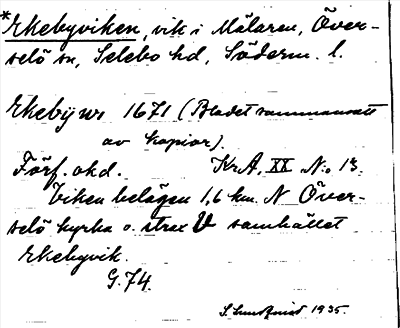 *Ekebyviken, vik i Mälaren, Över-
selö sn, Selebo hd, Söderm. l.
Ekebÿ wr 1671 (Bladet sammansatt
av kopior).
Förf. okd. KrA, XX No 13.
Viken belägen 1,6 km. N Över-
selö kyrka o. strax V samhället
Ekebyvik.
G.74.
S. Lundqvist 1935.